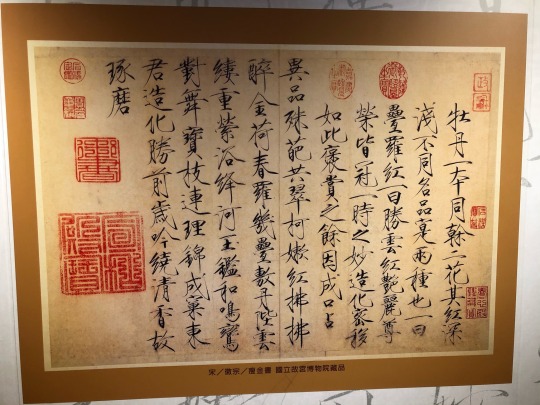 牡丹一本同幹二花其紅深
淺不同名品寔兩種也一曰
疊羅紅一曰勝雲紅艷麗尊
榮皆冠一時之妙造化密移
如此褒賞之餘因成口占
異品殊葩共翠柯嫩紅拂拂
醉金荷春羅幾疊敷丹陛雲
縷重縈浴絳河玉鑑和鳴鸞
對舞寶枝連理錦成窠東
君造化勝前歲吟繞清香故
琢磨
宋／徽宗／瘦金書 國立故宮博物院藏品